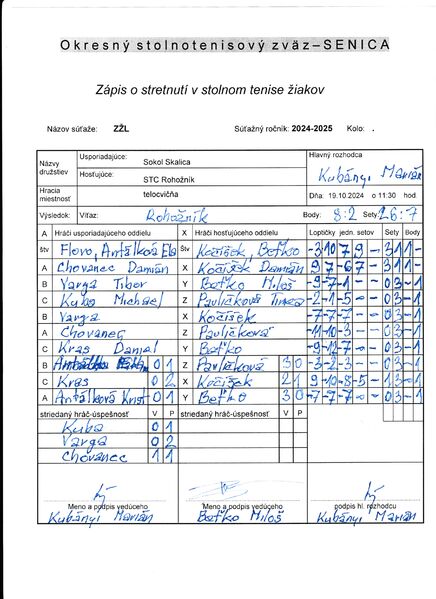 Okresný stolnotenisový zväz–SENICA
Zápis o stretnutí v stolnom tenise žiakov
Názov súťaže: ZŽL Súťažný ročník: 2024-2025 Kolo: .
Názvy družstiev Usporiadajúce: Sokol Skalica Hlavný rozhodca
Hosťujúce: STC Rohožník Kubányi Marián
Hracia miestnosť telocvičňa Dňa: 19.10.2024 o 11:30 hod.
Výsledok: Víťaz: Rohožník Body: 8:2 Sety 26:7
A Hráči usporiadajúceho oddielu X Hráči hosťujúceho oddielu Loptičky jedn. setov Sety Body
štv Flovo, Antálková Ela Štv Kočíšek, Beťko -3 10 7 9 - 3 1 1 -
A Chovanec Damián X Kočíšek Damián 9 7 -6 7 - 3 1 1 -
B Varga Tibor Y Beťko Miloš -9 -7 -7 - - 0 3 - 1
C Kuba Michael Z Pavlíčková Timea -2 -1 -5 - - 0 3 - 1
B Varga X Kočíšek -7 -7 -7 - - 0 3 - 1
A Chovanec Z Pavlíčková -11 -10 -3 - - 0 3 - 1
C Kras Daniel Y Beťko -9 -12 -7 - - 0 3 - 1
B 0 1 Z Pavlíčková 3 0 -3 -2 -3 - - 0 3 - 1
C Kras 0 2 X Kočíšek 2 1 9 -10 -8 -5 - 1 3 - 1
A Antálková Krist 0 1 Y Beťko 3 0 -7 -7 -7 - - 0 3 - 1
striedaný hráč-úspešnosť V P striedaný hráč-úspešnosť V P
Kuba 0 1
Varga 0 2
Chovanec 1 1
Meno a podpis vedúceho Meno a podpis vedúceho podpis hl. rozhodcu
Kubányi Marián Beťko Miloš Kubányi Marián